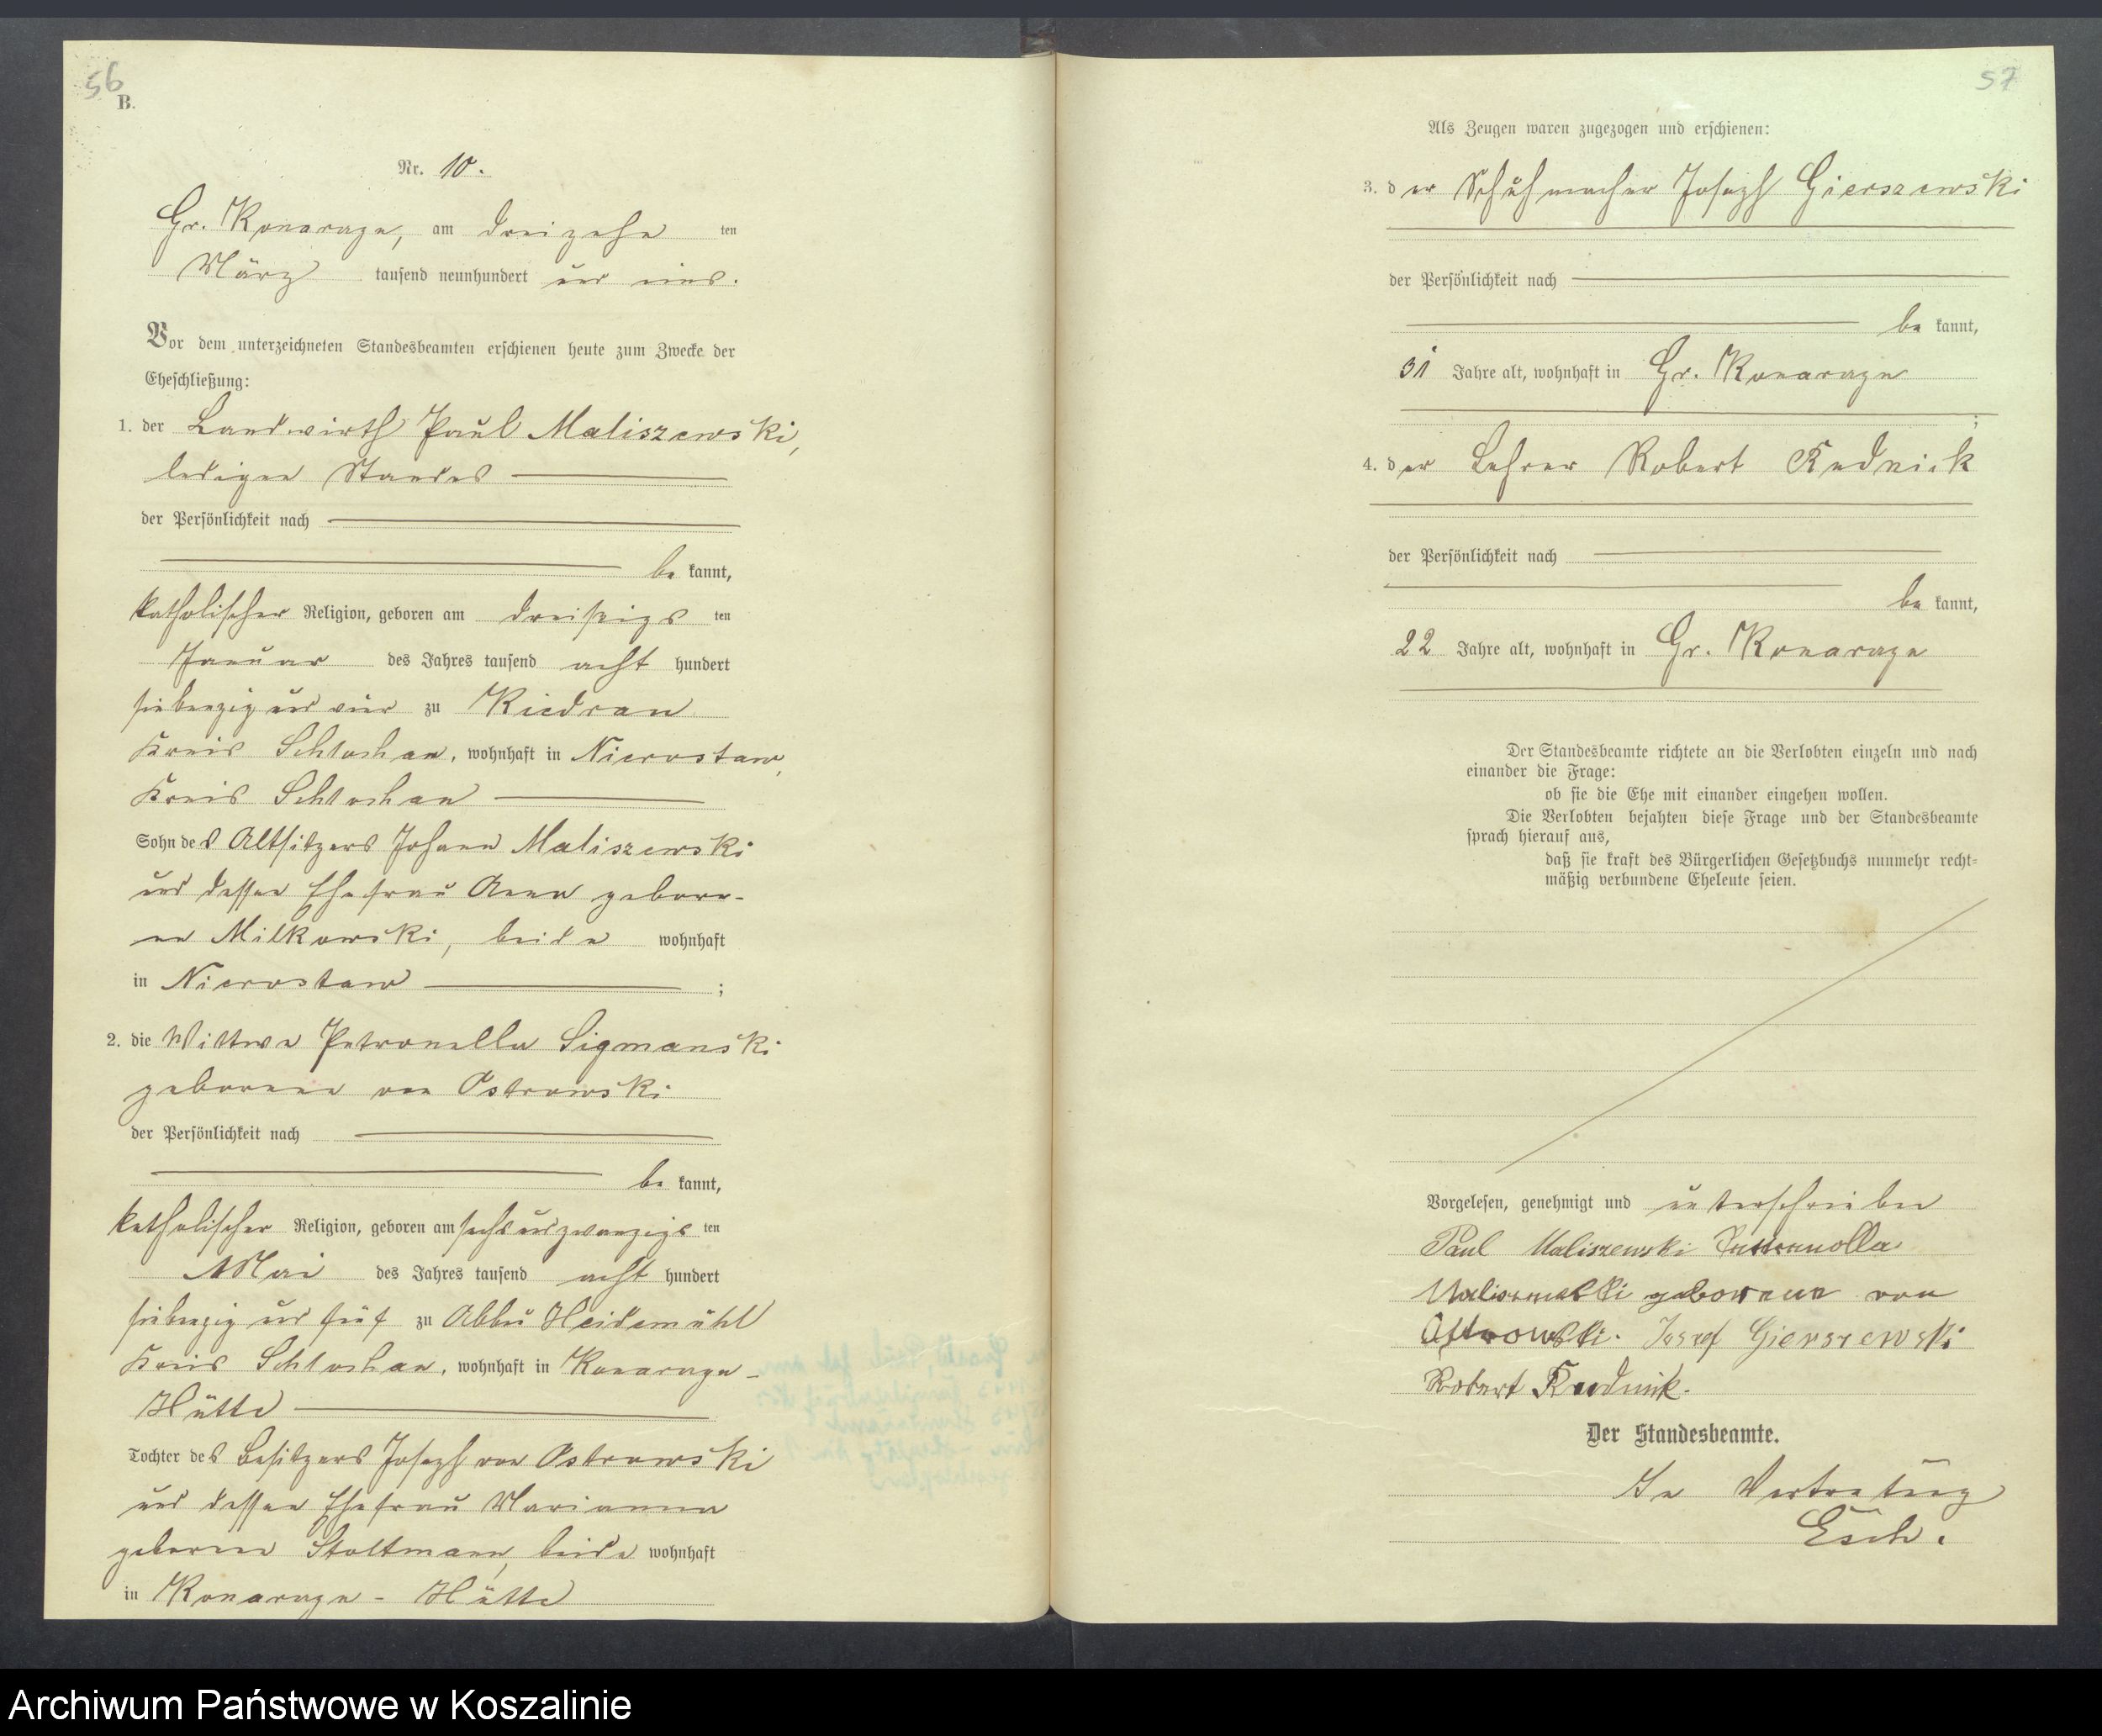 56
B.
Nr. 10.
Gr. Konarzyn, am dreizehn ten
März tausend neunhundert und eins.
Vor dem unterzeichneten Standesbeamten erschienen heute zum Zwecke der
Eheschließung:
1. der Landwirth Paul Maliszewski,
ledigen Standes
der Persönlichkeit nach
be kannt,
katholischer Religion, geboren am dreißigs ten
Januar des Jahres tausend acht hundert
siebenzig und vier zu Kiedrau
Kreis Schlochau, wohnhaft in Nierostaw,
Kreis Schlochau
Sohn des Altsitzers Johann Maliszewski
und dessen Ehefrau Anna gebore-
ne Milkowski, beide wohnhaft
in Nierostaw ;
2. die Wittwe Petronella Sigmanski
geborene von Ostrowski
der Persönlichkeit nach
be kannt,
katholischer Religion, geboren am sechsundzwanzigs ten
Mai des Jahres tausend acht hundert
siebenzig und fünf zu Abbau Heidemühl
Kreis Schlochau, wohnhaft in Konarzyn-
Hütte
Tochter des Besitzers Joseph von Ostrowski
und dessen Ehefrau Marianna
geborene Stoltmann, beide wohnhaft
in Konarzyn - Hütte
57
Als Zeugen waren zugezogen und erschienen:
3. der Schuhmacher Joseph Gierszewski
der Persönlichkeit nach
be kannt,
31 Jahre alt, wohnhaft in Gr. Konarzyn
;
4. der Lehrer Robert Rudnick
der Persönlichkeit nach
be kannt,
22 Jahre alt, wohnhaft in Gr. Konarzyn
Der Standesbeamte richtete an die Verlobten einzeln und nach
einander die Frage:
ob sie die Ehe mit einander eingehen wollen.
Die Verlobten bejahten diese Frage und der Standesbeamte
sprach hierauf aus,
daß sie kraft des Bürgerlichen Gesetzbuchs nunmehr recht=
mäßig verbundene Eheleute seien.
Vorgelesen, genehmigt und unterschrieben
Paul Maliszewski Petronella
Maliszewski geborene von
Ostrowski. Josef Gierszewski
Robert Rudnik.
Der Standesbeamte.
In Vertretung
Esch.
Archiwum Państwowe w Koszalinie